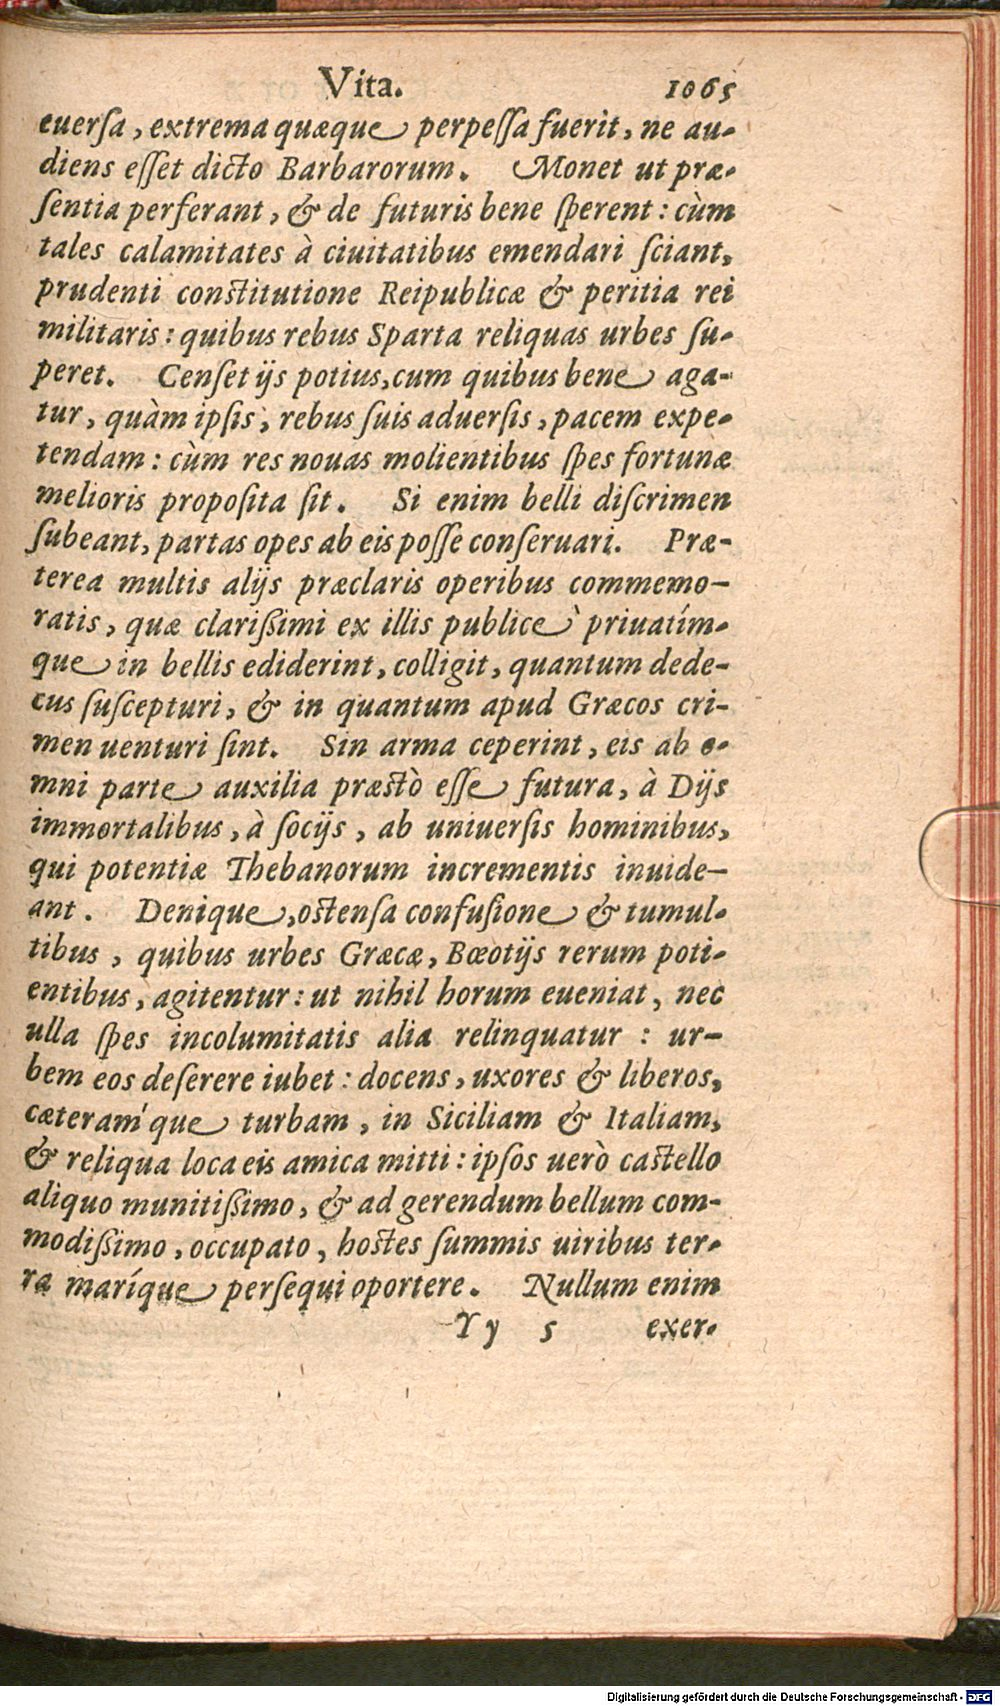 Vita. 1065
euerſa, extrema quæque perpeſſa fuerit, ne au-
diens eſſet dicto Barbarorum. Monet ut præ-
ſentia perferant, & de futuris bene ſperent: cùm
tales calamitates à ciuitatibus emendari ſciant,
prudenti conſtitutione Reipublicæ & peritia rei
militaris: quibus rebus Sparta reliquas urbes ſu-
peret. Cenſet ijs potius, cum quibus bene aga-
tur, quàm ipſis, rebus ſuis aduerſis, pacem expe-
tendam: cùm res nouas molientibus ſpes fortunæ
melioris propoſita ſit. Si enim belli diſcrimen
ſubeant, partas opes ab eis poſſe conſeruari. Præ-
terea multis alijs præclaris operibus commemo-
ratis, quæ clarißimi ex illis publicè priuatím-
que in bellis ediderint, colligit, quantum dede-
cus ſuſcepturi, & in quantum apud Græcos cri-
men uenturi ſint. Sin arma ceperint, eis ab o-
mni parte auxilia præstò eſſe futura, à Dijs
immortalibus, à ſocijs, ab uniuerſis hominibus,
qui potentiæ Thebanorum incrementis inuide-
ant. Denique, oſtenſa confuſione & tumul-
tibus, quibus urbes Græcæ, Bœotijs rerum poti-
entibus, agitentur: ut nihil horum eueniat, nec
ulla ſpes incolumitatis alia relinquatur : ur-
bem eos deſerere iubet: docens, uxores & liberos,
cæteraḿque turbam, in Siciliam & Italiam,
& reliqua loca eis amica mitti: ipſos uerò caſtello
aliquo munitißimo, & ad gerendum bellum com-
modißimo, occupato, hoſtes ſummis uiribus ter-
ra maríque perſequi oportere. Nullum enim
Yy 5 exer-
Digitalisierung gefördert durch die Deutsche Forschungsgemeinschaft - DFG